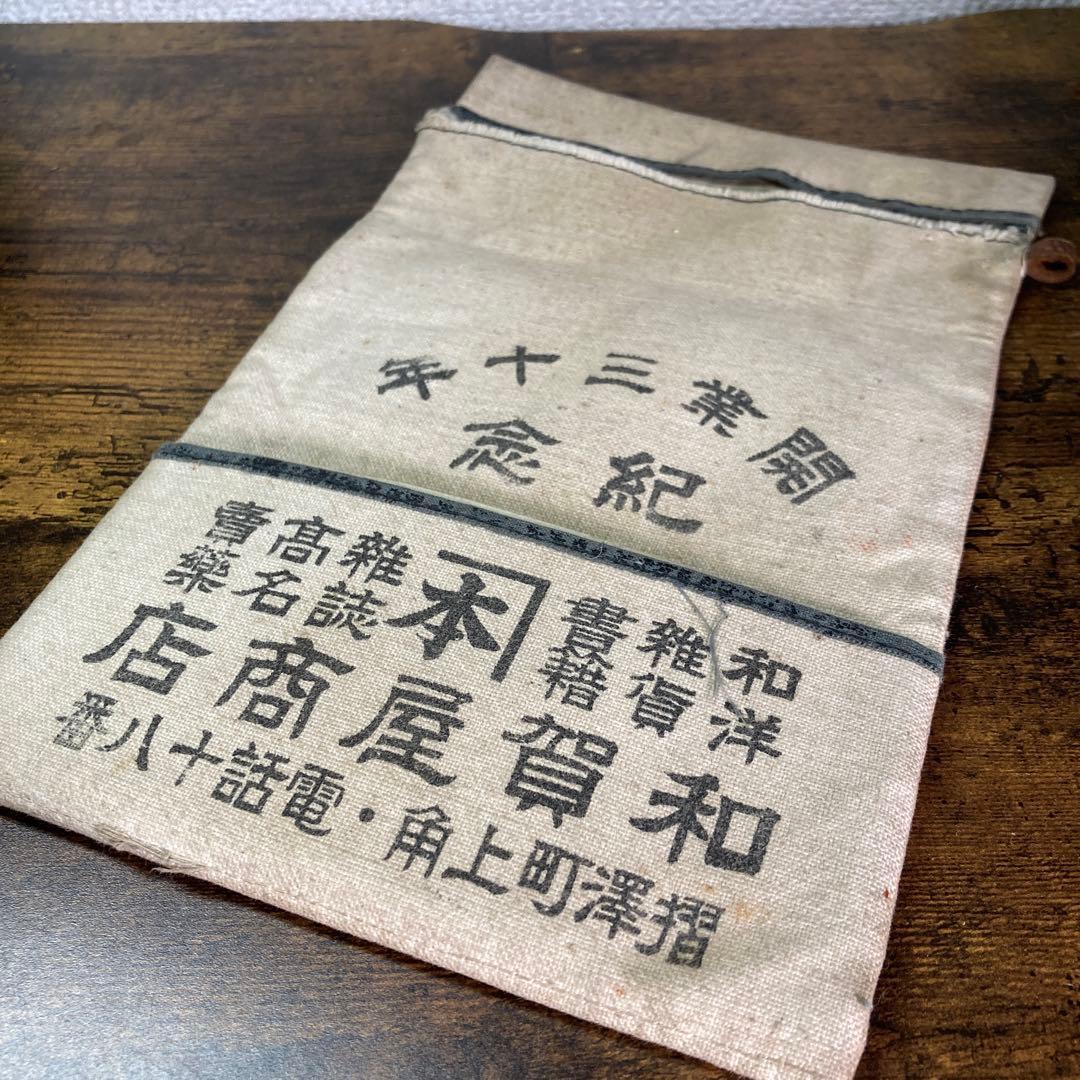 開業三十年
紀念
和洋
雜貨
書籍
本
雜誌
髙名
賣藥
和賀屋商店
摺澤町上角・電話十八番